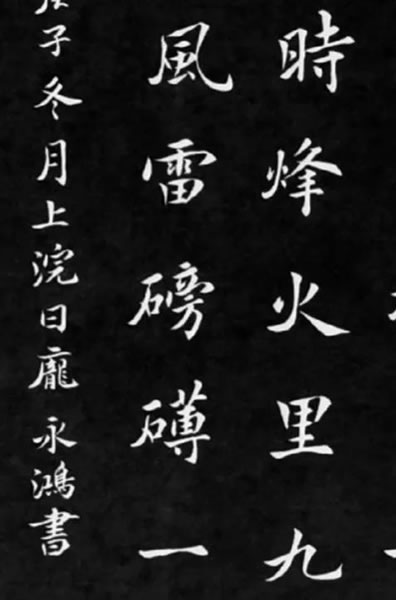 時烽火里九
風雷磅礡一
子冬月上浣日龐永鴻書